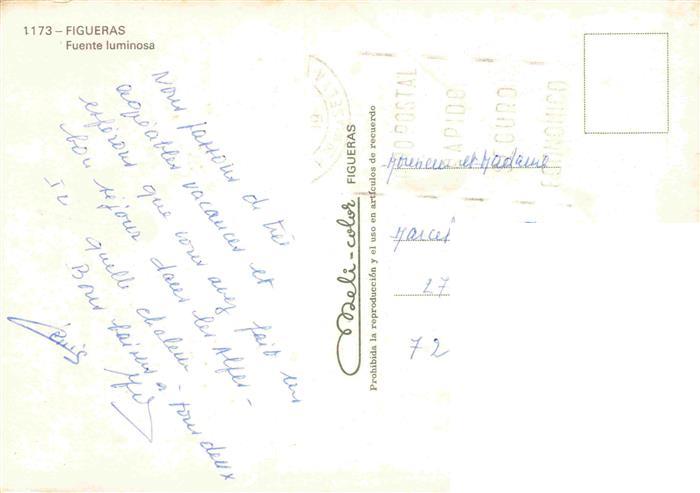 1173 – FIGUERAS
Fuente luminosa
Nous passons de très
agréables vacances et
espérons que vous avez fait un
bon séjour dans les Alpes -
Ici quelle chaleur -
Bons baisers à tous deux
Meli-color FIGUERAS
Prohibida la reproducción y el uso en artículos de recuerdo
O POSTAL
APIDO
GURO
ECONOMICO
Monsieur et Madame
Marcel
27
72